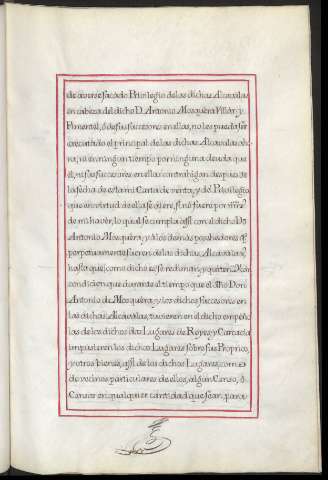 de averse sacado Privilegio de las dichas Alcavalas
en cabeza del dicho D. Antonio Mosquera Villar, y
Pimentel, ó de sus succesores en ellas, no les pueda ser
executado el principal de las dichas Alcavalas aho-
ra, ni en ningun tiempo por ninguna deuda que
el, ni sus succesores en ellas contrahigan despues de
la fecha de esta mi Carta de venta, y del Privilegio
que en virtud de ella se diere, si no fuere por mrs.
de mi haver, lo qual se cumpla assi con el dicho Dn.
Antonio Mosquera, y a los demás posehedores qe.
perpetuamente fueren de las dichas Alcavalas
hasta que, como dicho es, se rediman, y quiten. Y con
condicion que durante el tiempo que el dho Don
Antonio de Mosquera, y los dichos succesores en
las dichas Alcavalas, tuvieren en el dicho empeño
las de los dichos dos Lugares de Royos, y
impusieren los dichos Lugares sobre sus Proprios,
y otros bienes, assi de los dichos Lugares, como
de vecinos particulares de ellos, algun Censo, ó
Censos en qualquier cantidad que sean, para